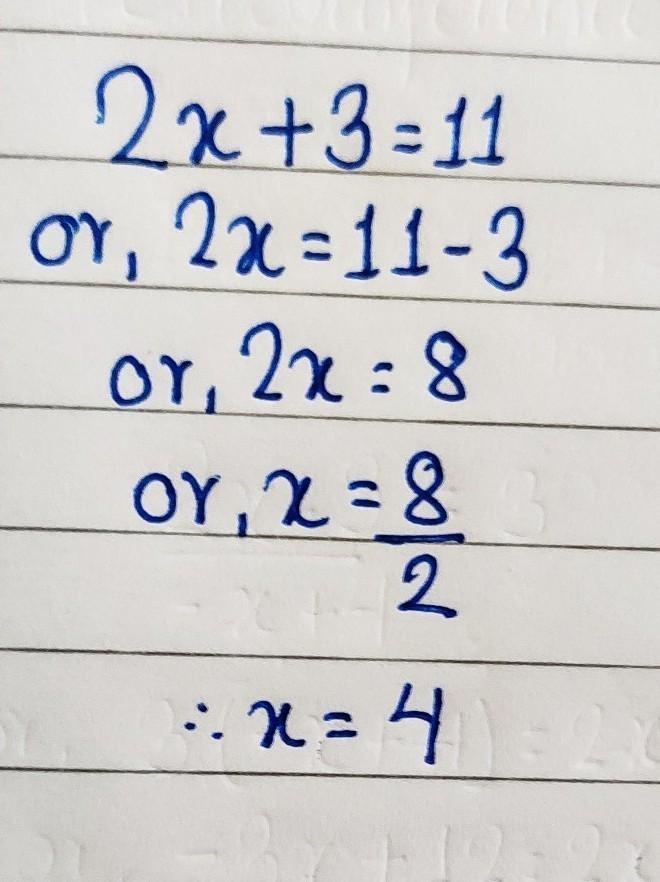 2x+3=11
or, 2x=11-3
or, 2x=8
or, x=8/2
∴ x=4